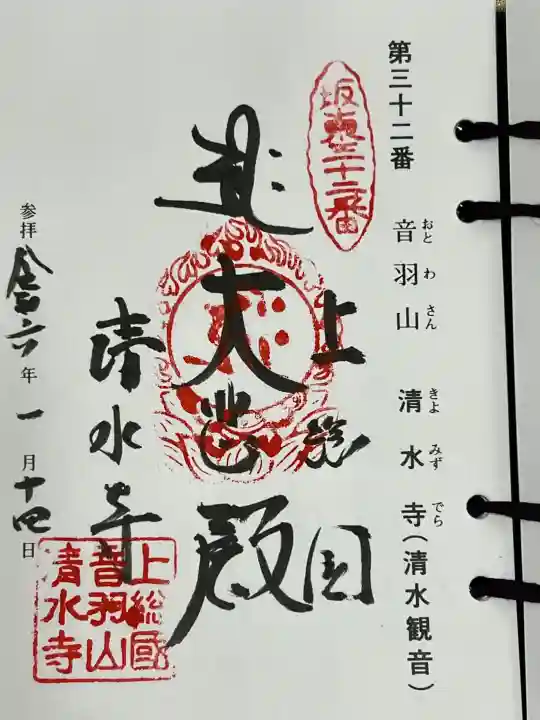 第三十二番 音羽山 清水寺(清水観音)
おと わ さん きよ みず でら
坂東三十二番
上総国
大悲殿
清水寺
上総國
音羽山
清水寺
参拝 令和六年 一月十四日